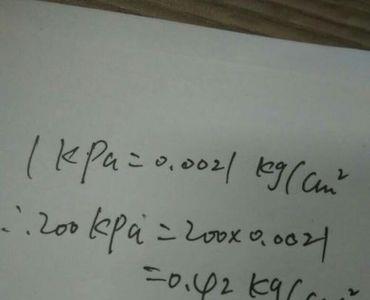 1 KPa = 0.0021 kg/cm²
∴ 200 kpa = 200 × 0.0021
= 0.42 kg/cm²